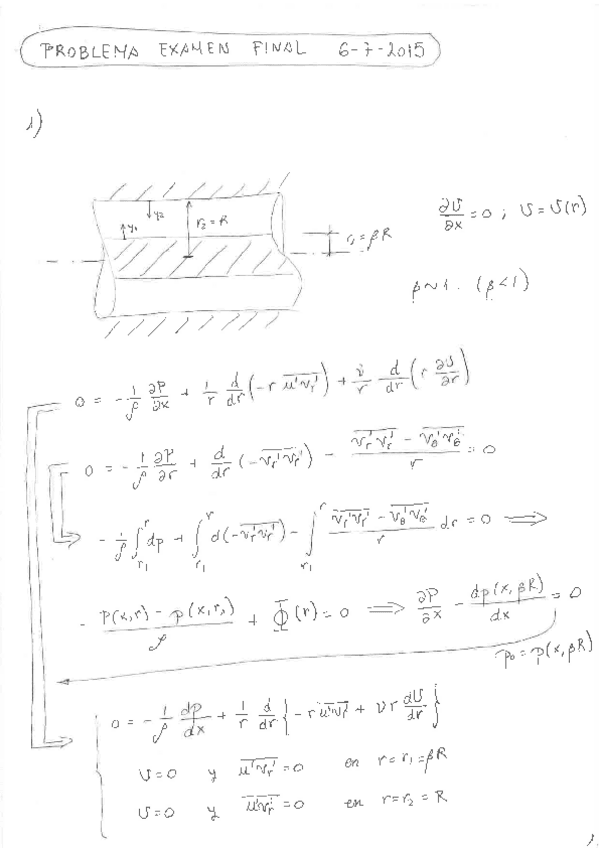 PROBLEMA EXAMEN FINAL 6-7-2015
1)
y₁ y₂ r₂ = R r₁ = βR
∂U/∂x = 0 ; U = U(r)
β ~ 1. (β < 1)
0 = - 1/ρ ∂P/∂x + 1/r d/dr (-r \overline{u'v_r'}) + ν/r d/dr (r ∂U/∂r)
0 = - 1/ρ ∂P/∂r + d/dr (-\overline{v_r'v_r'}) - (\overline{v_r'v_r'} - \overline{v_θ'v_θ'})/r = 0
- 1/ρ ∫_{r₁}^{r} dp + ∫_{r₁}^{r} d(-\overline{v_r'v_r'}) - ∫_{r₁}^{r} (\overline{v_r'v_r'} - \overline{v_θ'v_θ'})/r dr = 0 ⟹
- (P(x,r) - p(x,r₁))/ρ + Φ(r) = 0 ⟹ ∂P/∂x - dp(x,βR)/dx = 0
p₀ = p(x,βR)
0 = - 1/ρ dp/dx + 1/r d/dr { -r \overline{u'v_r'} + ν r dU/dr }
U = 0 y \overline{u'v_r'} = 0 en r = r₁ = βR
U = 0 y \overline{u'v_r'} = 0 en r = r₂ = R